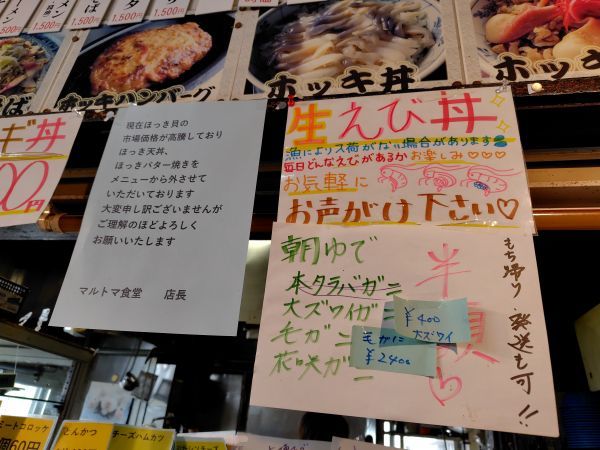 1,500円
1,500円
1,500円
ホッキハンバーグ
ホッキ丼
ホッ
ば
ギ丼
00円
現在ほっき貝の
市場価格が高騰しており
ほっき天丼、
ほっきバター焼きを
メニューから外させて
いただいております
大変申し訳ございませんが
ご理解のほどよろしく
お願いいたします
マルトマ食堂 店長
生えび丼
漁により入荷がない場合があります
毎日どんなえびがあるかお楽しみ♡♡♡
お気軽に
お声がけ下さい♡
朝ゆで
本タラバガニ
大ズワイガニ
毛ガニ
花咲ガニ
半額
もち帰り 発送も可!!
¥400
大ズワイ
毛がに
¥2400
ミートコロッケ
個60円
とんかつ
チーズハムカツ